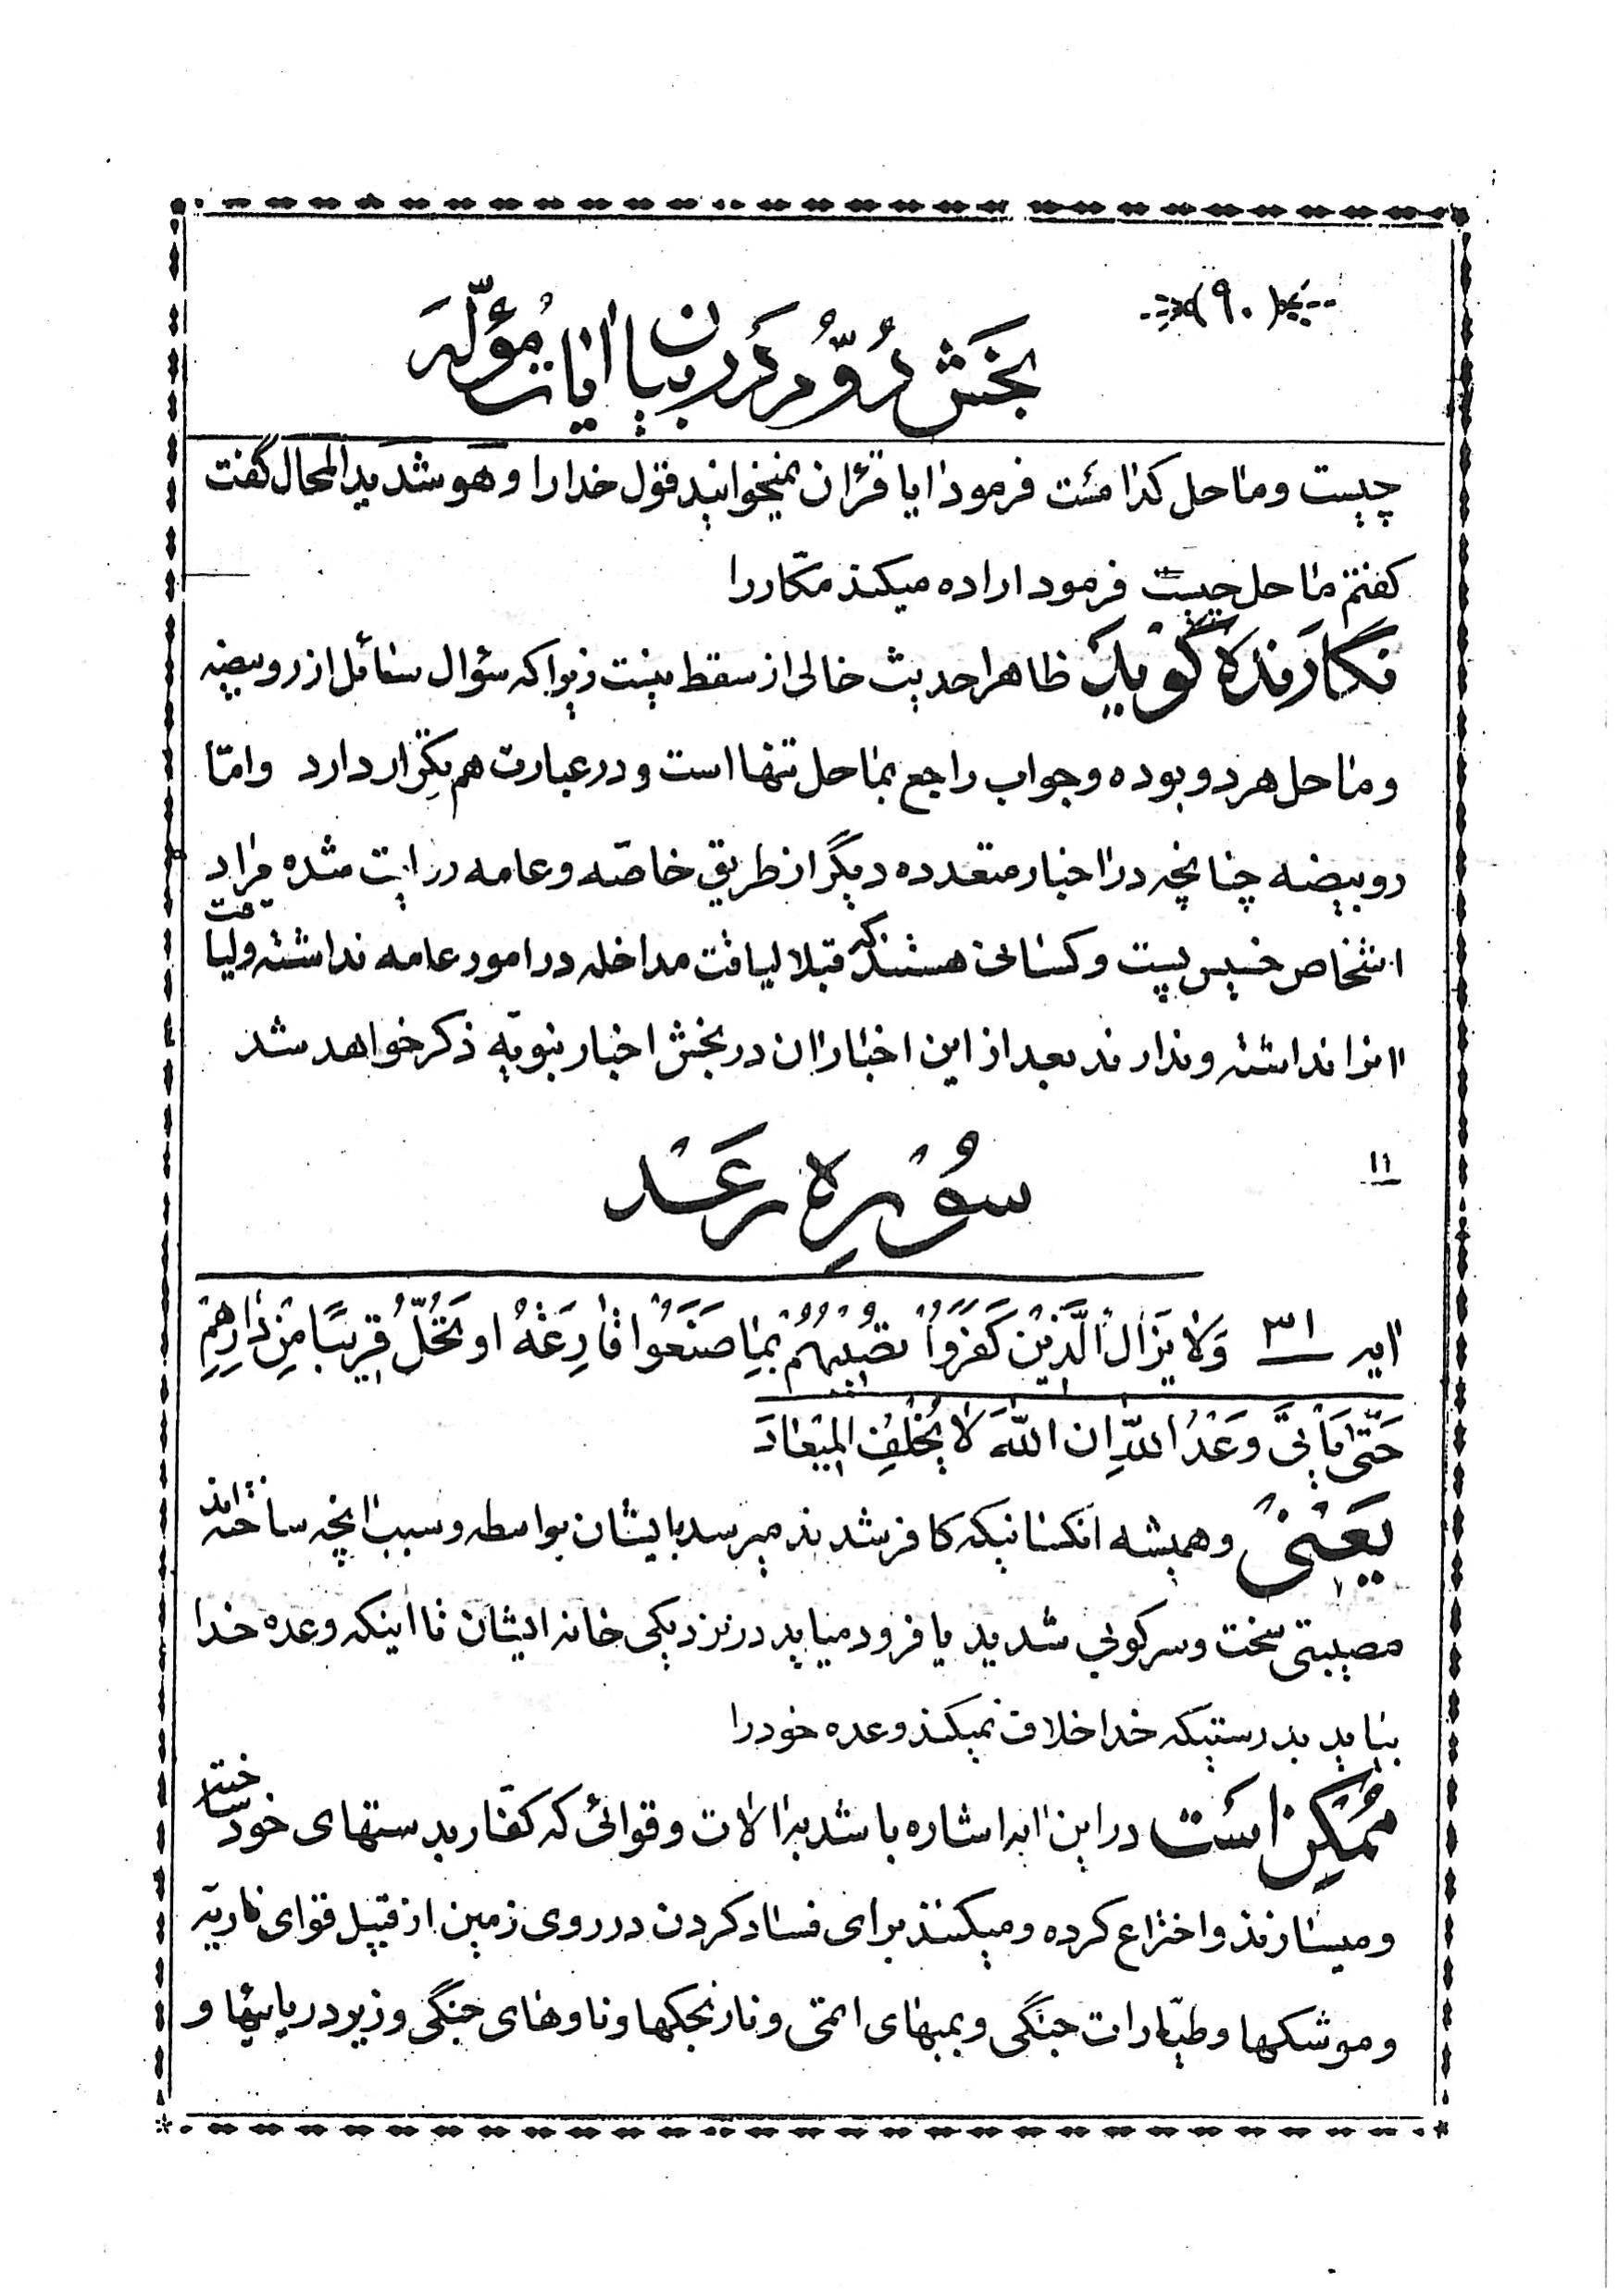 (۹۰)
بخش دوّم در بیان ایات مُؤلّه
چیست و ماحل کدامست فرمود ایا قرآن نمیخوانید قول خدا را و هو شدید المحال گفت
گفتم ماحل چیست فرمود اراده میکند مکّار را
نگارنده گوید ظاهرا حدیث خالی از سقط نیست زیرا که سؤال سائل از رویبضه
و ماحل هر دو بوده و جواب راجع بماحل تنها است و در عبارت هم تکرار دارد و امّا
رویبضه چنانچه در اخبار متعدده دیگر از طریق خاصّه و عامه روایت شده مراد
اشخاص خسیس پست و کسانی هستند که قبلا لیاقت مداخله در امور عامه نداشته و لیاقت
انرا نداشته و ندارند بعد از این اخبار ان در بخش اخبار نبویّه ذکر خواهد شد
۱۱
سُوْره رعَد
ایه ۳۱ وَلا یَزالُ الَّذیْنَ کَفَرُوا تُصْیبُهُمْ بِما صَنَعُوا قارِعَةُ او تَحُلُّ قریبًا مِنْ دارِهِمْ
حَتّی یَأتِیَ وَعْدُ اللّٰهِ ان اللّٰهَ لا یُخْلِفُ المیْعادَ
یَعنیْ و همیشه انکسانیکه کافر شدند میرسد بایشان بواسطه و سبب انچه ساخته‌اند
مصیبتی سخت و سرکوبی شدید یا فرود میاید در نزدیکی خانه ایشان تا اینکه وعده خدا
بیاید بدرستیکه خدا خلاف نمیکند وعده خود را
مُمْکِن است در این ایه اشاره باشد به الات و قوائی که کفّار بدستهای خود ساخته
و میسازند و اختراع کرده و میکنند برای فساد کردن در روی زمین از قبیل قوای ناریّه
و موشکها و طیّارات جنگی و بمبهای اتمی و نارنجکها و ناوهای جنگی و زیردریائیها و